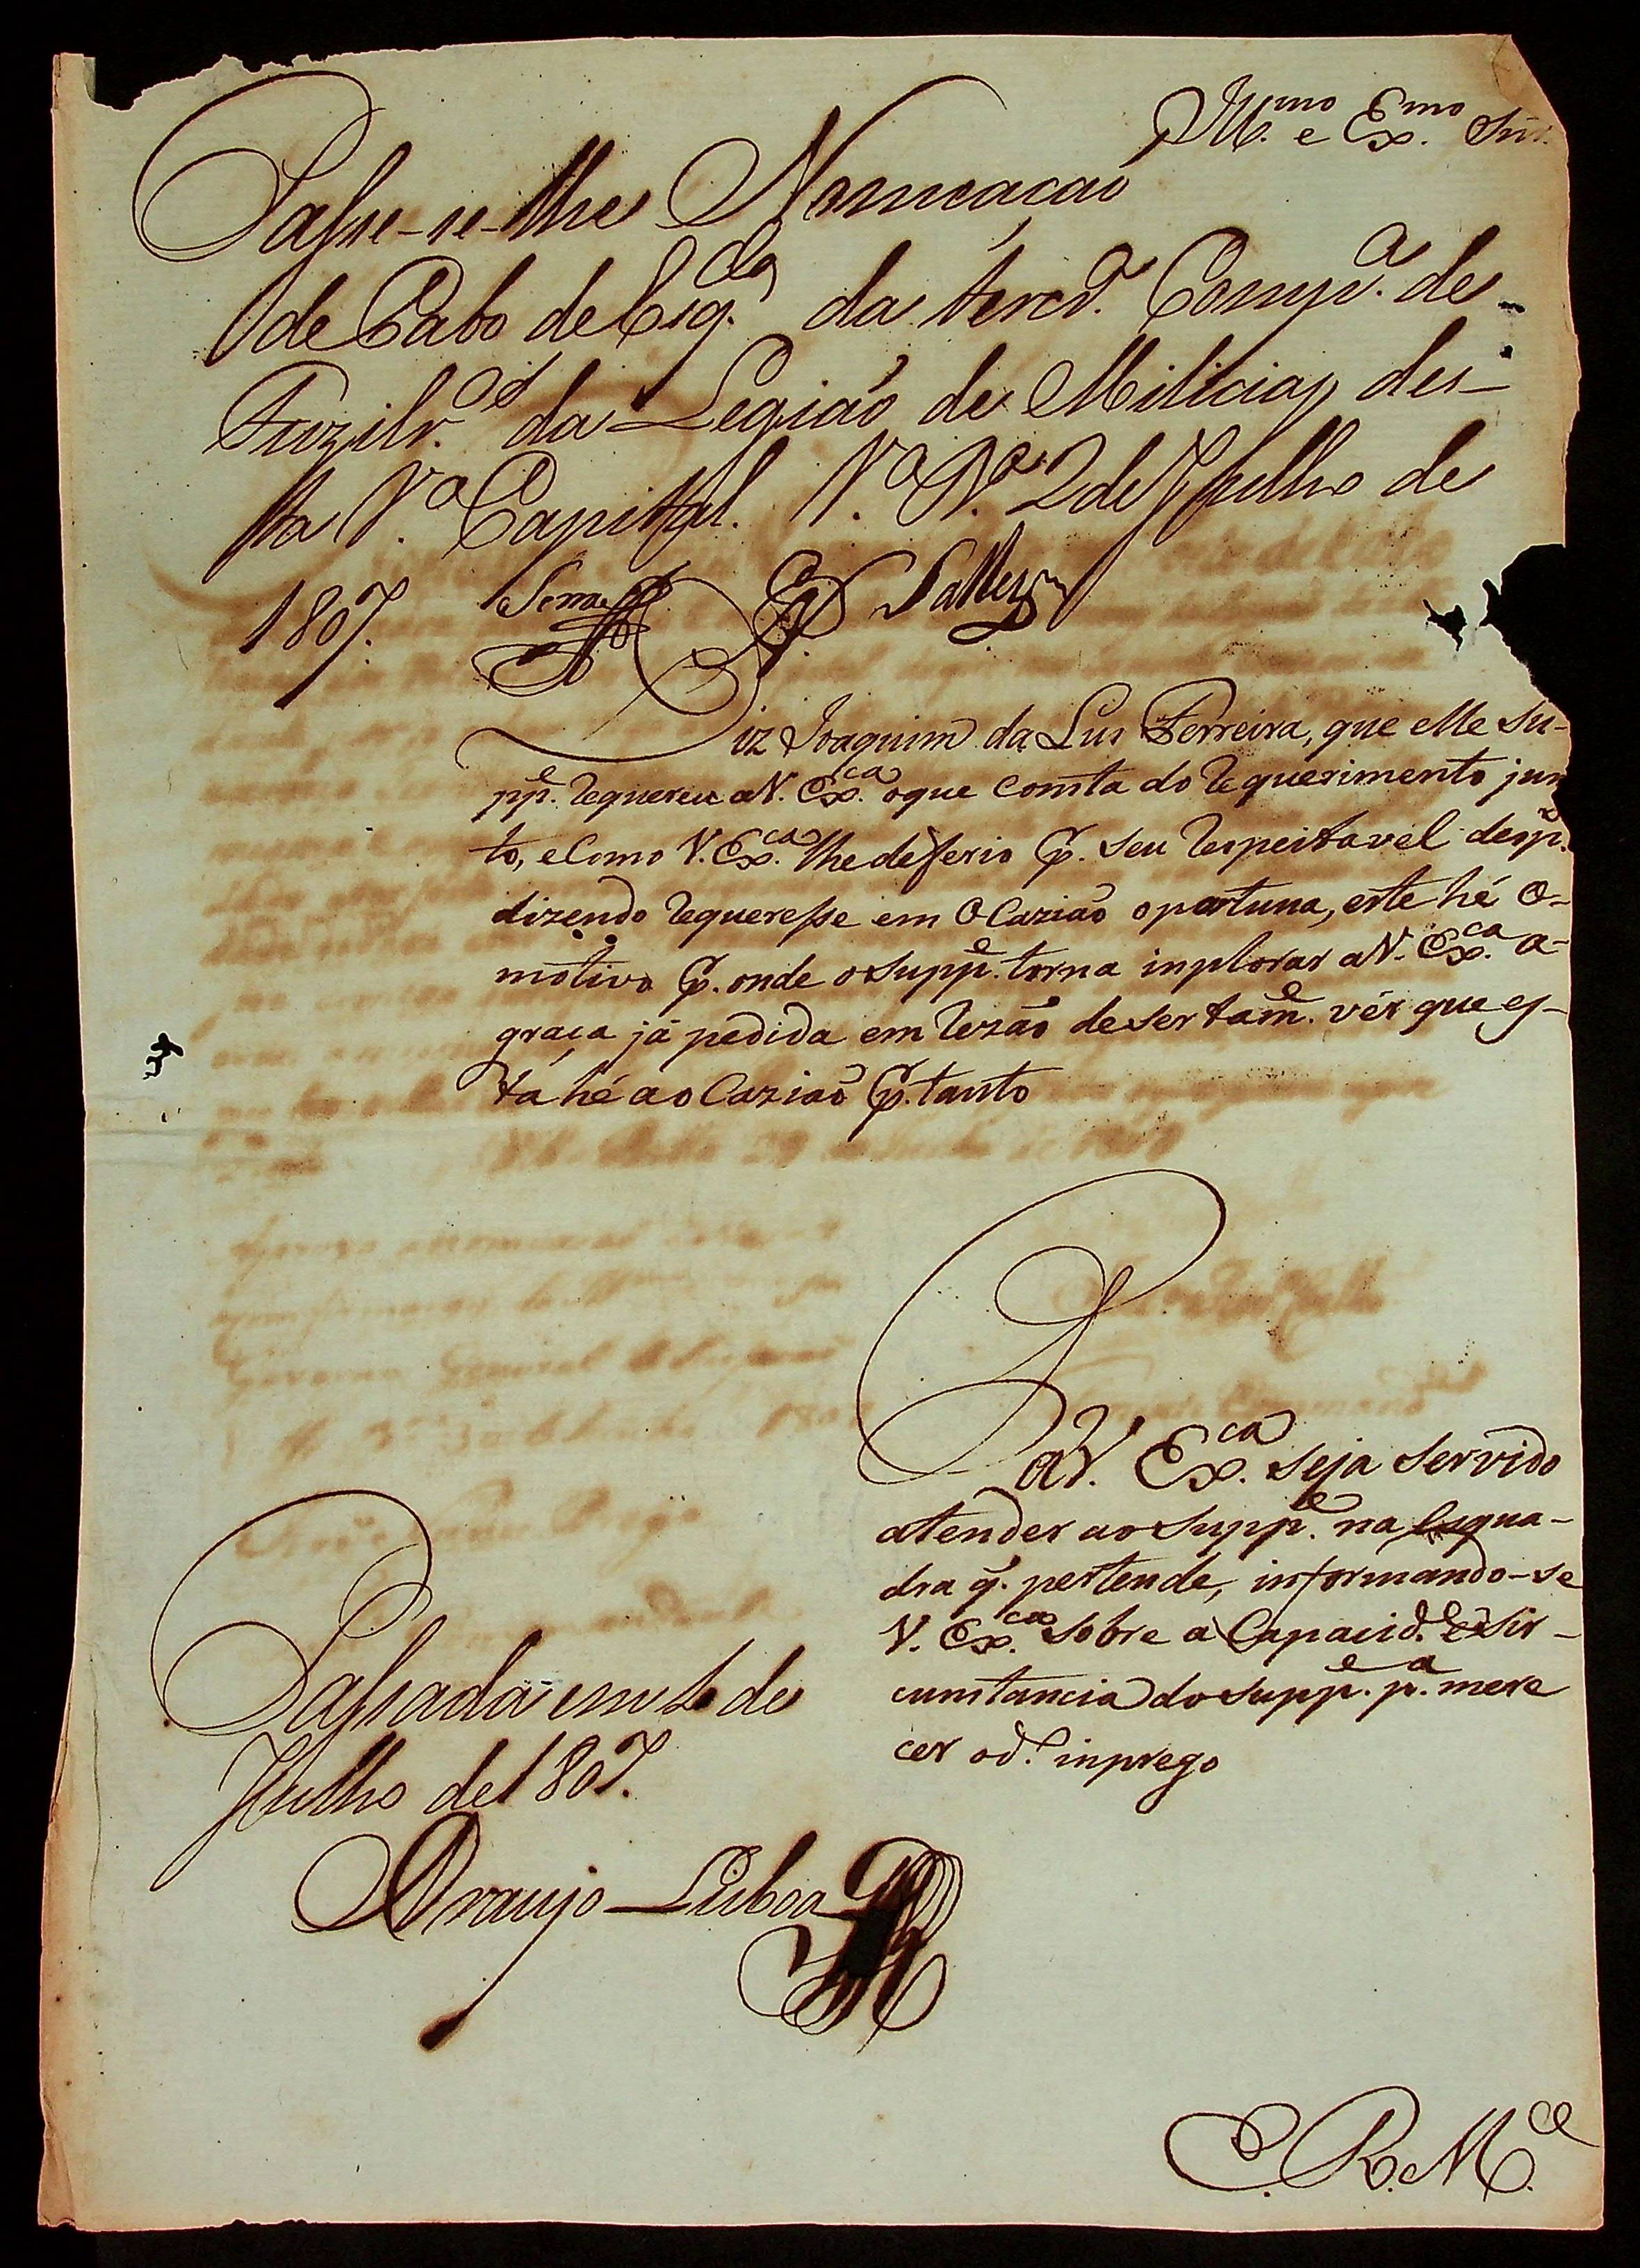 Ill.mo e Ex.mo Snr.
Passe-se-lhe Nomeação
de Cabo de Esq.da da terc.ra Comp.a de
Fuzilr.os da Legião de Milicias des-
ta V.a Capital. V.a R.a 2 de Julho de
1807.
Diz Joaquim da Lus Ferreira, que elle Su-
pp.e requereu a V. Ex.ca o que Consta do requerimento jun
to, e Como V. Ex.ca lhe deferio p. seu respeitavel desp.
dizendo requeresse em Ocazião oportuna, este hé o-
motivo p. onde o Supp.e torna inplorar a V. Ex.ca a-
graça já pedida em rezão de sertam.e vér que es-
ta hé a oCazião p. tanto
P a V. Ex.ca seja servido
atender ao Supp.e na Esqua-
dra q. pertende, informando-se
V. Ex.ca sobre a Capacid.e e Sir-
cunstancia do Supp.e p.a mere
cer o d.o inprego
Passada em 2 de
Julho de 1807.
Araujo Lisboa
E. R. M.ce